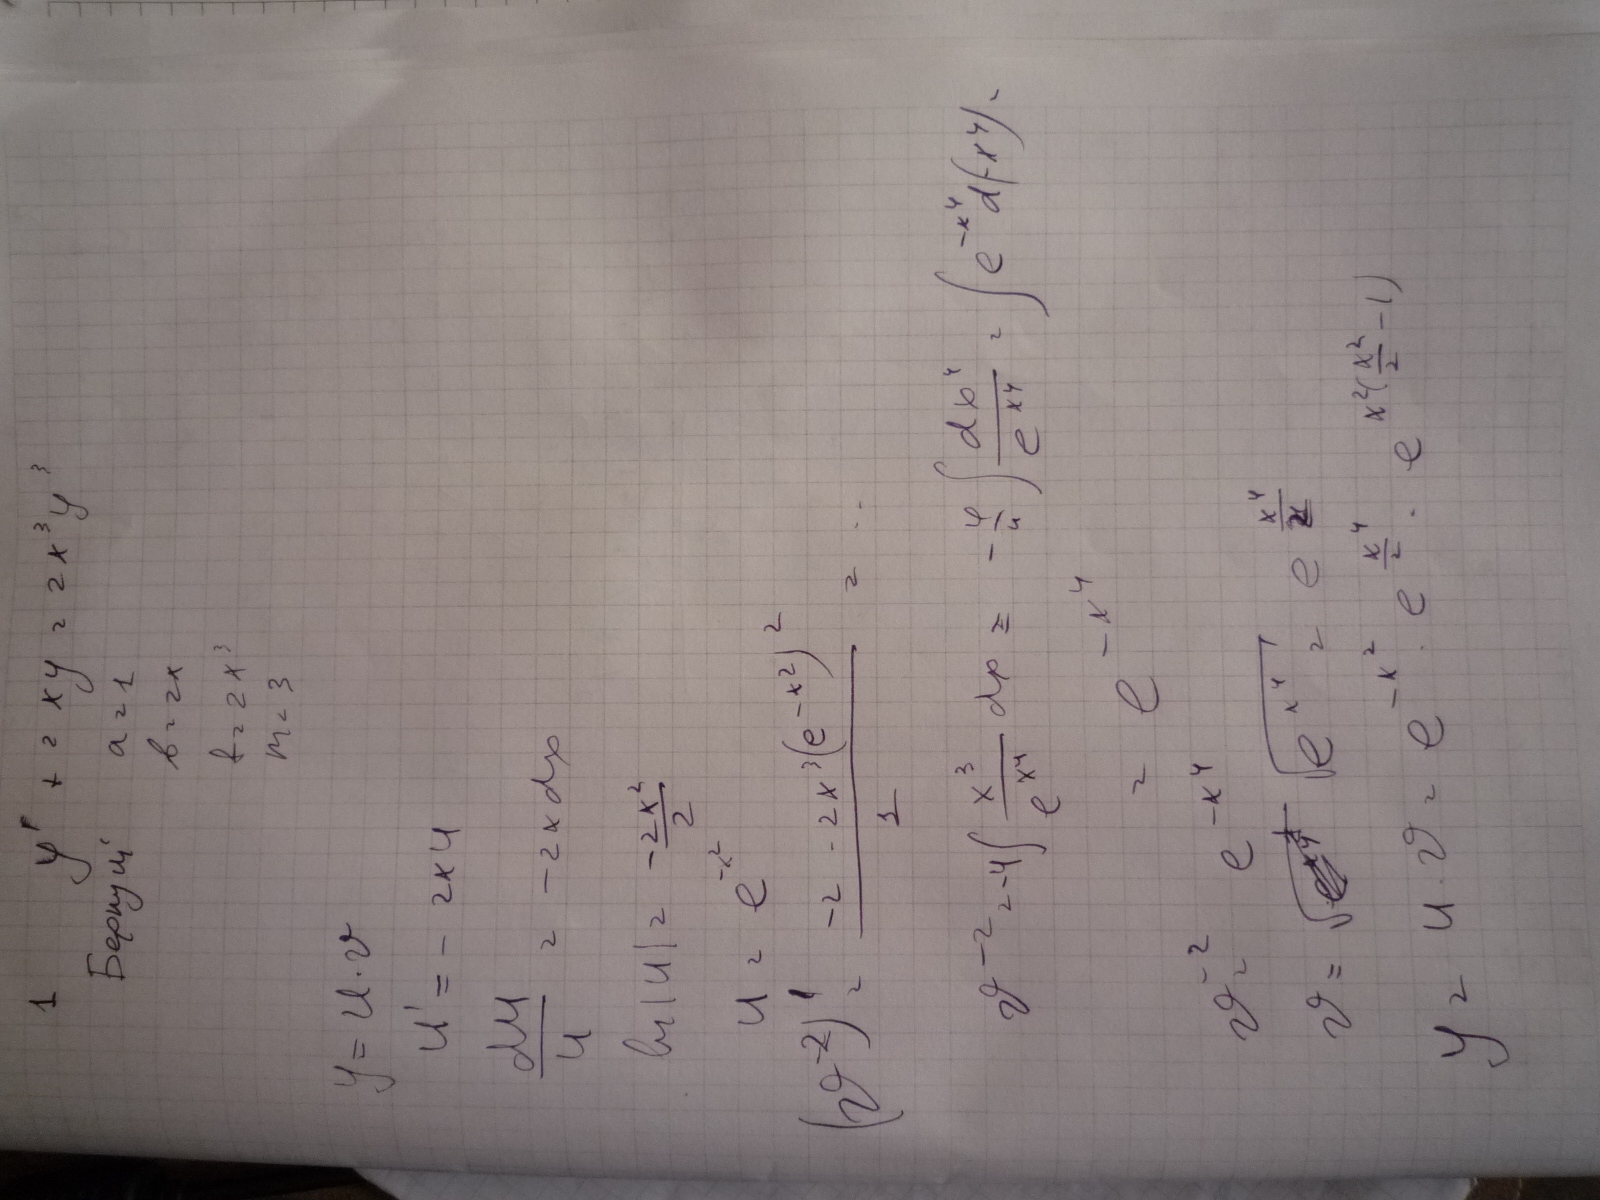 1 y' + 2xy = 2x³y³
Бернулі
a = 1
b = 2x
f = 2x³
m = 3
y = u·v
u' = - 2xu
du/u = -2x dx
ln|u| = -2x²/2
u = e^(-x²)
(v^(-2))' = -2·2x³(e^(-x²))²/1 = ...
v^(-2) = -4∫x³/e^(x⁴) dx = -4/4 ∫dx⁴/e^(x⁴) = ∫e^(-x⁴)d(-x⁴) =
= e^(-x⁴)
v^(-2) = e^(-x⁴)
v = √(e^(x⁴)) = e^(x⁴/2)
y = u·v = e^(-x²)·e^(x⁴/2) · e^(x²(x²/2 - 1))